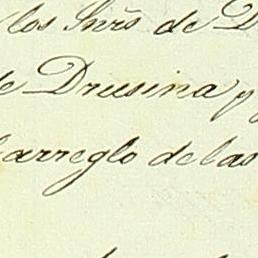 los Snrẽs de D
de Drusina y
arreglo de las